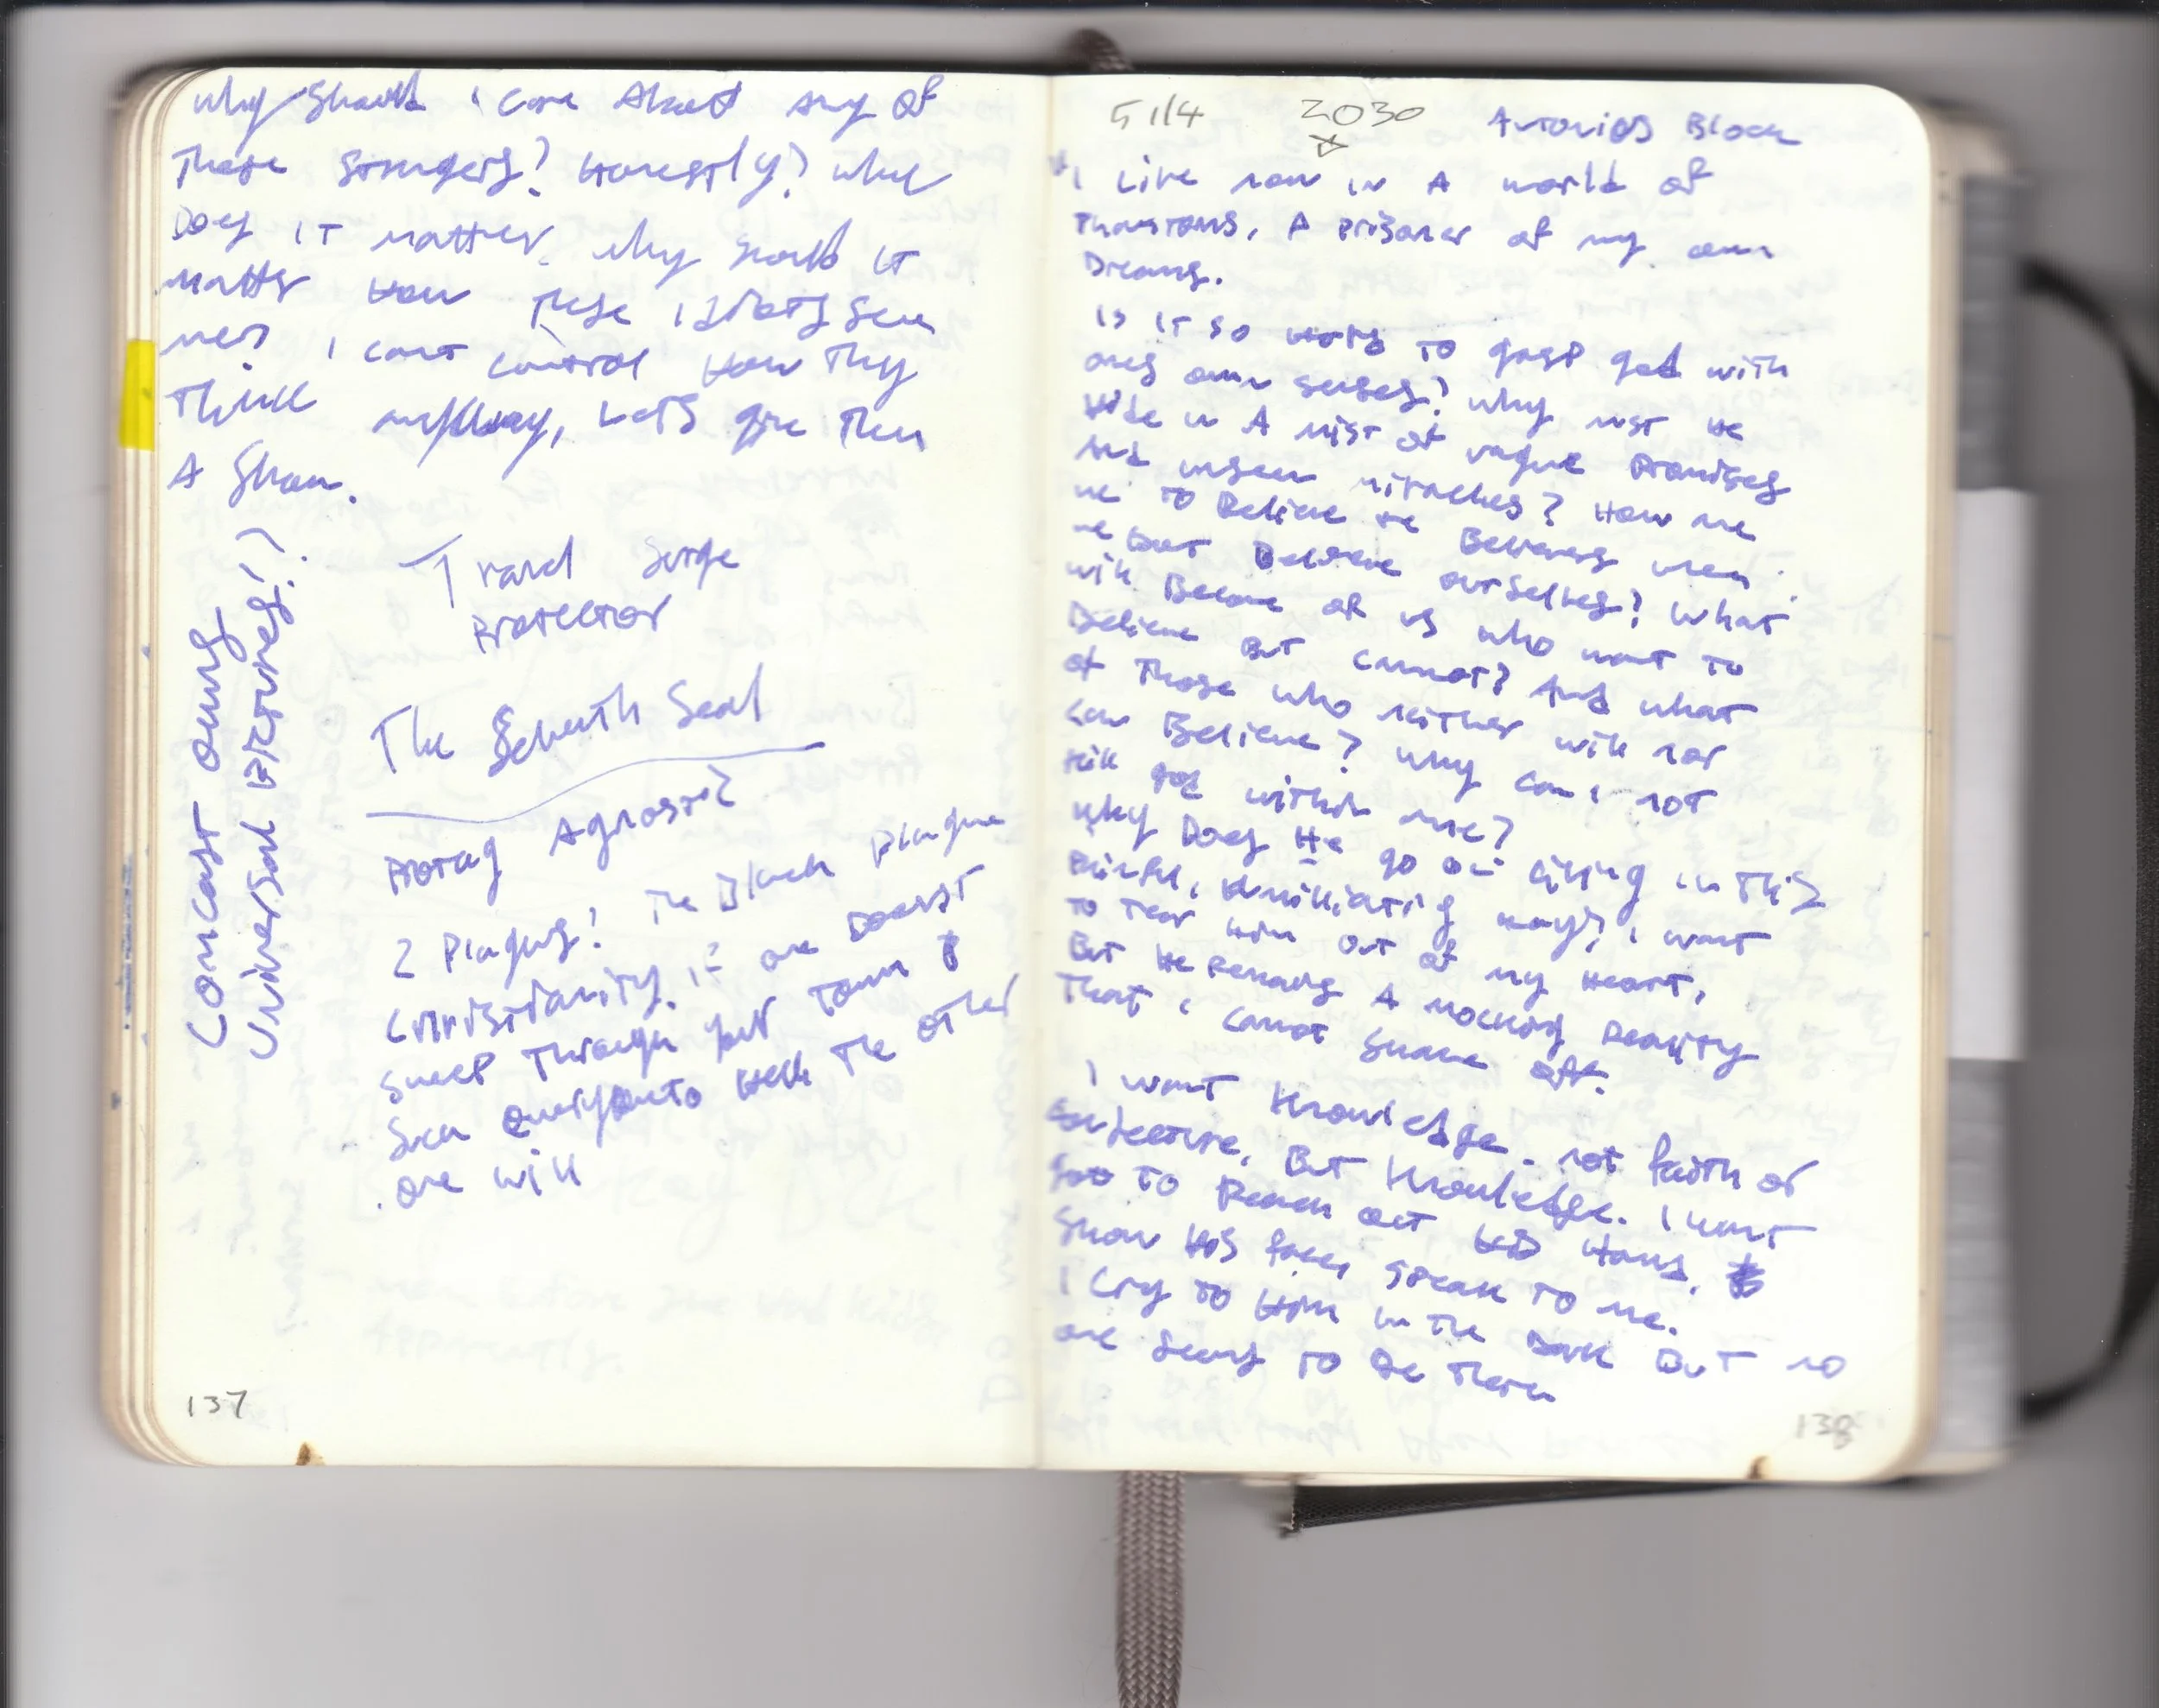 Why should i care about any of
these strangers? Honestly? Why
Does it matter. why should it
matter how these idiots see
me? i cant control how they
think anyway, Lets give them
A show.
Travel surge
Protector
Comcast owns
Universal Pictures!?
The Seventh Seal
Protag Agnostic
2 Plagues! The Black plague
Christianity. if one doesnt
sweep through your town &
soon the other
one will
137
5 1/4 2030 Antonius Block
"I Live now in A world of
Phantoms, A prisoner of my own
Dreams.
is it so hard to grasp god with
ones own senses? why must He
Hide in A mist of vague Promises
and unseen miracles? How are
we to Believe the Believers when
we dont Believe ourselves? What
will Become of us who want to
Believe But cannot? And what
of Those who neither will nor
can Believe? Why can i not
kill god within me?
Why Does He go on living in This
Painful, Humiliating way? i want
to tear him out of my Heart,
But He Remains A mocking Reality
That i cannot shake off.
I want Knowledge. not faith or
But Knowledge. I want
God to Reach out His Hand,
Show His face, speak to me.
I Cry to Him in the Dark But no
one seems to Be there
138